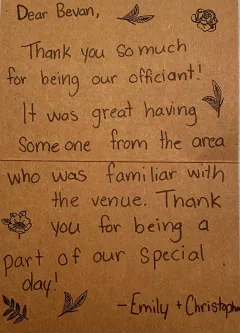 Dear Bevan,
Thank you so much
for being our officiant!
It was great having
Someone from the area
who was familiar with
the venue. Thank
you for being a
part of our special
day!
-Emily + Christopher